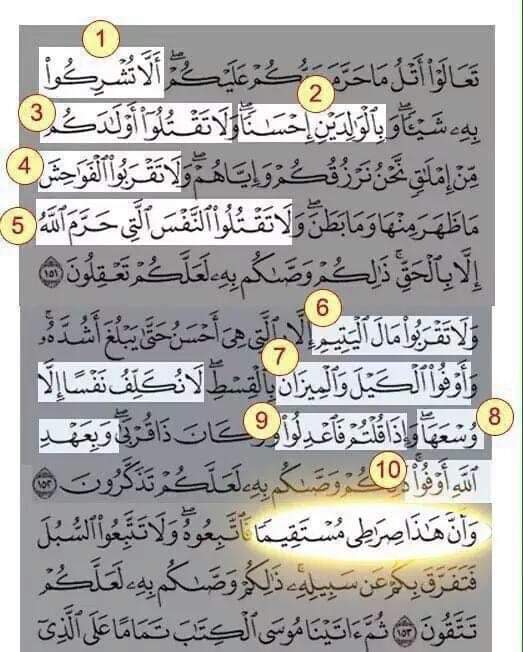 1
تَعَالَوْا۟ أَتْلُ مَا حَرَّمَ رَبُّكُمْ عَلَيْكُمْ ۖ أَلَّا تُشْرِكُوا۟
2
بِهِۦ شَيْـًٔا ۖ وَبِٱلْوَٰلِدَيْنِ إِحْسَـٰنًا ۖ وَلَا تَقْتُلُوٓا۟ أَوْلَـٰدَكُم
3
مِّنْ إِمْلَـٰقٍ ۖ نَّحْنُ نَرْزُقُكُمْ وَإِيَّاهُمْ ۖ وَلَا تَقْرَبُوا۟ ٱلْفَوَٰحِشَ
4
مَا ظَهَرَ مِنْهَا وَمَا بَطَنَ ۖ وَلَا تَقْتُلُوا۟ ٱلنَّفْسَ ٱلَّتِى حَرَّمَ ٱللَّهُ
5
إِلَّا بِٱلْحَقِّ ۚ ذَٰلِكُمْ وَصَّىٰكُم بِهِۦ لَعَلَّكُمْ تَعْقِلُونَ ١٥١
6
وَلَا تَقْرَبُوا۟ مَالَ ٱلْيَتِيمِ إِلَّا بِٱلَّتِى هِىَ أَحْسَنُ حَتَّىٰ يَبْلُغَ أَشُدَّهُۥ ۖ
7
وَأَوْفُوا۟ ٱلْكَيْلَ وَٱلْمِيزَانَ بِٱلْقِسْطِ ۖ لَا نُكَلِّفُ نَفْسًا إِلَّا
8
وُسْعَهَا ۖ وَإِذَا قُلْتُمْ فَٱعْدِلُوا۟ وَلَوْ كَانَ ذَا قُرْبَىٰ ۖ وَبِعَهْدِ
9
ٱللَّهِ أَوْفُوا۟ ۚ ذَٰلِكُمْ وَصَّىٰكُم بِهِۦ لَعَلَّكُمْ تَذَكَّرُونَ ١٥٢
10
وَأَنَّ هَـٰذَا صِرَٰطِى مُسْتَقِيمًا فَٱتَّبِعُوهُ ۖ وَلَا تَتَّبِعُوا۟ ٱلسُّبُلَ
فَتَفَرَّقَ بِكُمْ عَن سَبِيلِهِۦ ۚ ذَٰلِكُمْ وَصَّىٰكُم بِهِۦ لَعَلَّكُمْ
تَتَّقُونَ ١٥٣ ثُمَّ ءَاتَيْنَا مُوسَى ٱلْكِتَـٰبَ تَمَامًا عَلَى ٱلَّذِىٓ